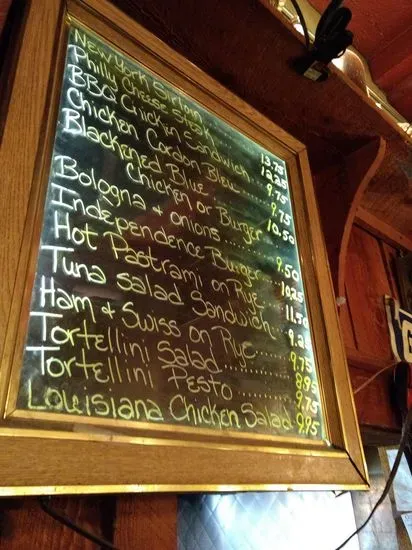 New York Sirloin ..... 13.75
Philly Cheese Steak ..... 12.25
BBQ Chickin Sandwich .. 9.75
Chicken Cordon Bleu ..... 9.75
Blackened Blue
Chicken or Burger 10.50
Bologna + onions ....... 9.50
Independence Burger .. 10.25
Hot Pastrami on Rye .. 11.50
Tuna salad Sandwich .. 9.25
Ham & Swiss on Rye .. 9.75
Tortellini Salad ....... 8.95
Tortellini Pesto ....... 9.75
Louisiana Chicken Salad 9.95